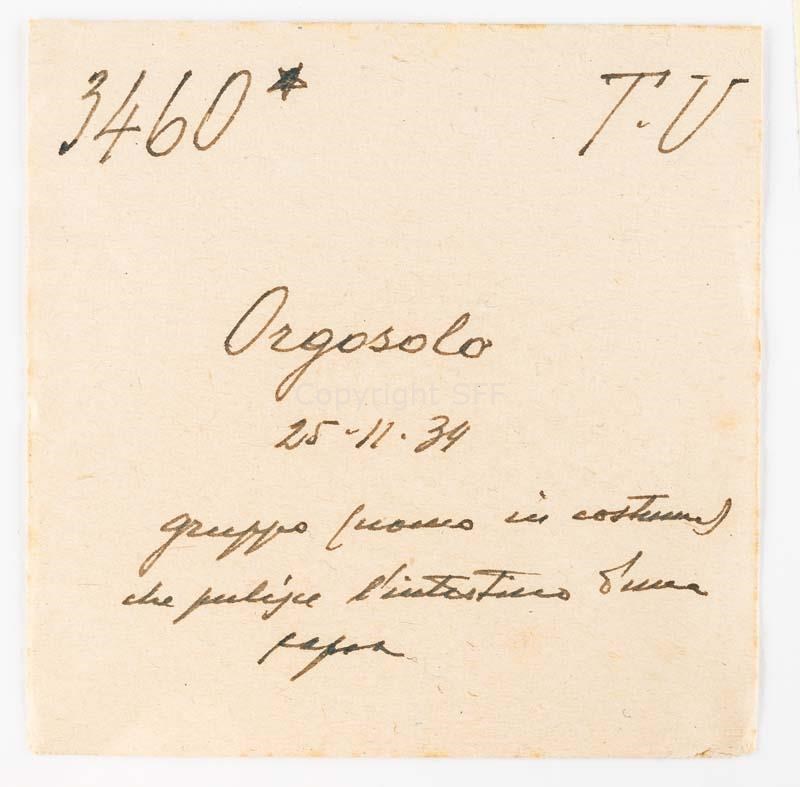 3460* T.U
Orgosolo
Copyright SFF
25-11-34
gruppo (uomo in costume)
che pulisce l'intestino d'una